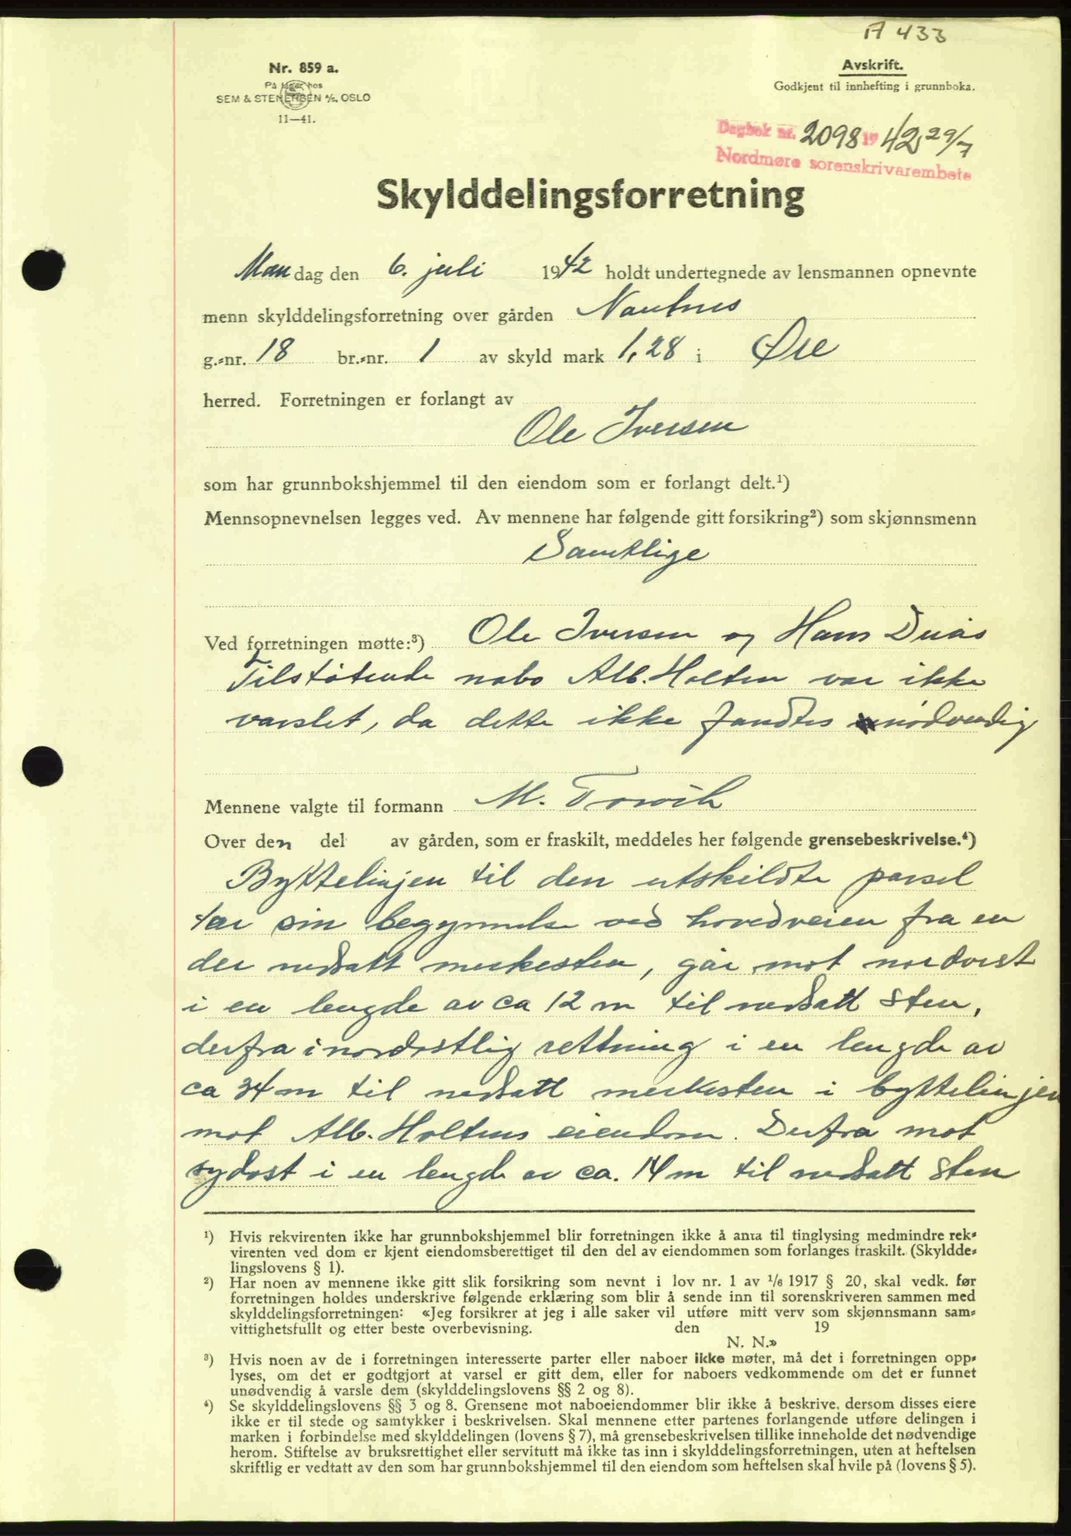 A 433
Nr. 859 a.
På lager hos
SEM & STENERSEN A/S, OSLO
11—41.
Avskrift.
Godkjent til innhefting i grunnboka.
Dagbok nr. 2098 1942 29/7
Nordmøre sorenskrivarembete
Skylddelingsforretning
Mandag den 6. juli 1942 holdt undertegnede av lensmannen opnevnte
menn skylddelingsforretning over gården Nautnes
g.-nr. 18 br.-nr. 1 av skyld mark 1,28 i Øre
herred. Forretningen er forlangt av
Ole Iversen
som har grunnbokshjemmel til den eiendom som er forlangt delt.¹)
Mennsopnevnelsen legges ved. Av mennene har følgende gitt forsikring²) som skjønnsmenn
Samtlige
Ved forretningen møtte:³) Ole Iversen og Hans Duås
Tilstøtende nabo Alb. Holten var ikke
varslet, da dette ikke fandtes nødvendig
Mennene valgte til formann M. Torvik
Over den del av gården, som er fraskilt, meddeles her følgende grensebeskrivelse.⁴)
Byttelinjen til den utskildte parsel
tar sin begynnelse ved hovedveien fra en
der nedsatt merkesten, går mot nordvest
i en lengde av ca 12 m til nedsatt sten,
derfra i nordostlig rettning i en lengde av
ca 34 m til nedsatt merkesten i byttelinjen
mot Alb. Holtens eiendom. Derfra mot
sydost i en lengde av ca. 14 m til nedsatt sten
¹) Hvis rekvirenten ikke har grunnbokshjemmel blir forretningen ikke å anta til tinglysing medmindre rek-
virenten ved dom er kjent eiendomsberettiget til den del av eiendommen som forlanges fraskilt. (Skyldde-
lingslovens § 1).
²) Har noen av mennene ikke gitt slik forsikring som nevnt i lov nr. 1 av 1/6 1917 § 20, skal vedk. før
forretningen holdes underskrive følgende erklæring som blir å sende inn til sorenskriveren sammen med
skylddelingsforretningen: «Jeg forsikrer at jeg i alle saker vil utføre mitt verv som skjønnsmann sam-
vittighetsfullt og etter beste overbevisning. den 19
N. N.»
³) Hvis noen av de i forretningen interesserte parter eller naboer ikke møter, må det i forretningen opp-
lyses, om det er godtgjort at varsel er gitt dem, eller for naboers vedkommende om det er funnet
unødvendig å varsle dem (skylddelingslovens §§ 2 og 8).
⁴) Se skylddelingslovens §§ 3 og 8. Grensene mot naboeiendommer blir ikke å beskrive, dersom disses eiere
ikke er til stede og samtykker i beskrivelsen. Skal mennene etter partenes forlangende utføre delingen i
marken i forbindelse med skylddelingen (lovens § 7), må grensebeskrivelsen tillike inneholde det nødvendige
herom. Stiftelse av bruksrettighet eller servitutt må ikke tas inn i skylddelingsforretningen, uten at heftelsen
skriftlig er vedtatt av den som har grunnbokshjemmel til den eiendom som heftelsen skal hvile på (lovens § 5).